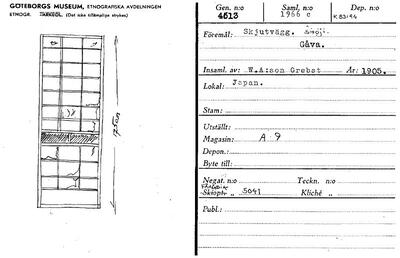 GÖTEBORGS MUSEUM, ETNOGRAFISKA AVDELNINGEN
ETNOGR. (Det icke tillämpliga strykes)
Gen. n:o Saml. n:o Dep. n:o
4513 1966 c K 83:44
Föremål: Skjutvägg. Shoji.
Gåva.
Insaml. av: W.A:son Grebst År: 1905.
Lokal: Japan.
Stam:
Utställt:
Magasin: A 9
Depon.:
Byte till:
Negat. n:o Teckn. n:o
Skiopt. „ 5041 Kliché „
Publ.: